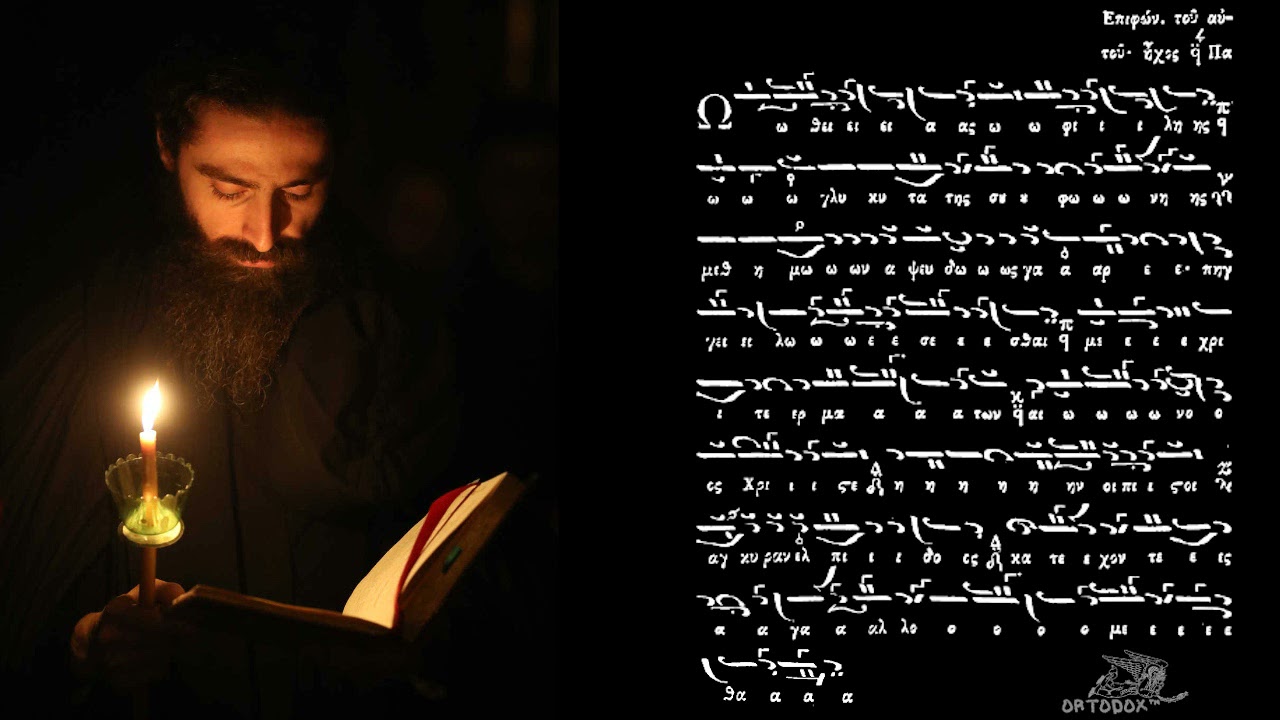 Ἐπιφών. τοῦ αὐ-
τοῦ· ἦχος Πα
Ω ω θει ει ει α ας ω ω φι ι ι λη ης
ω ω ω γλυ κυ τα της σου ου φω ω ω νη ης
μεθ η μω ω ων α ψευ δω ω ως γα α αρ ε ε· πηγ
γει ει λω ω ω ε ε σε ε ε σθαι με ε ε ε χρι
ι τε ερ μα α α α των αι ω ω ω ω νο ο
ος Χρι ι ι στε η η η η η ην οι πι ι στοι
αγ κυ ραν ελ πι ι ι δο ος κα τε ε χον τε ε ες
α α γα α αλ λο ο ο ο ο με ε ε ε
θα α α α
ORTODOX™